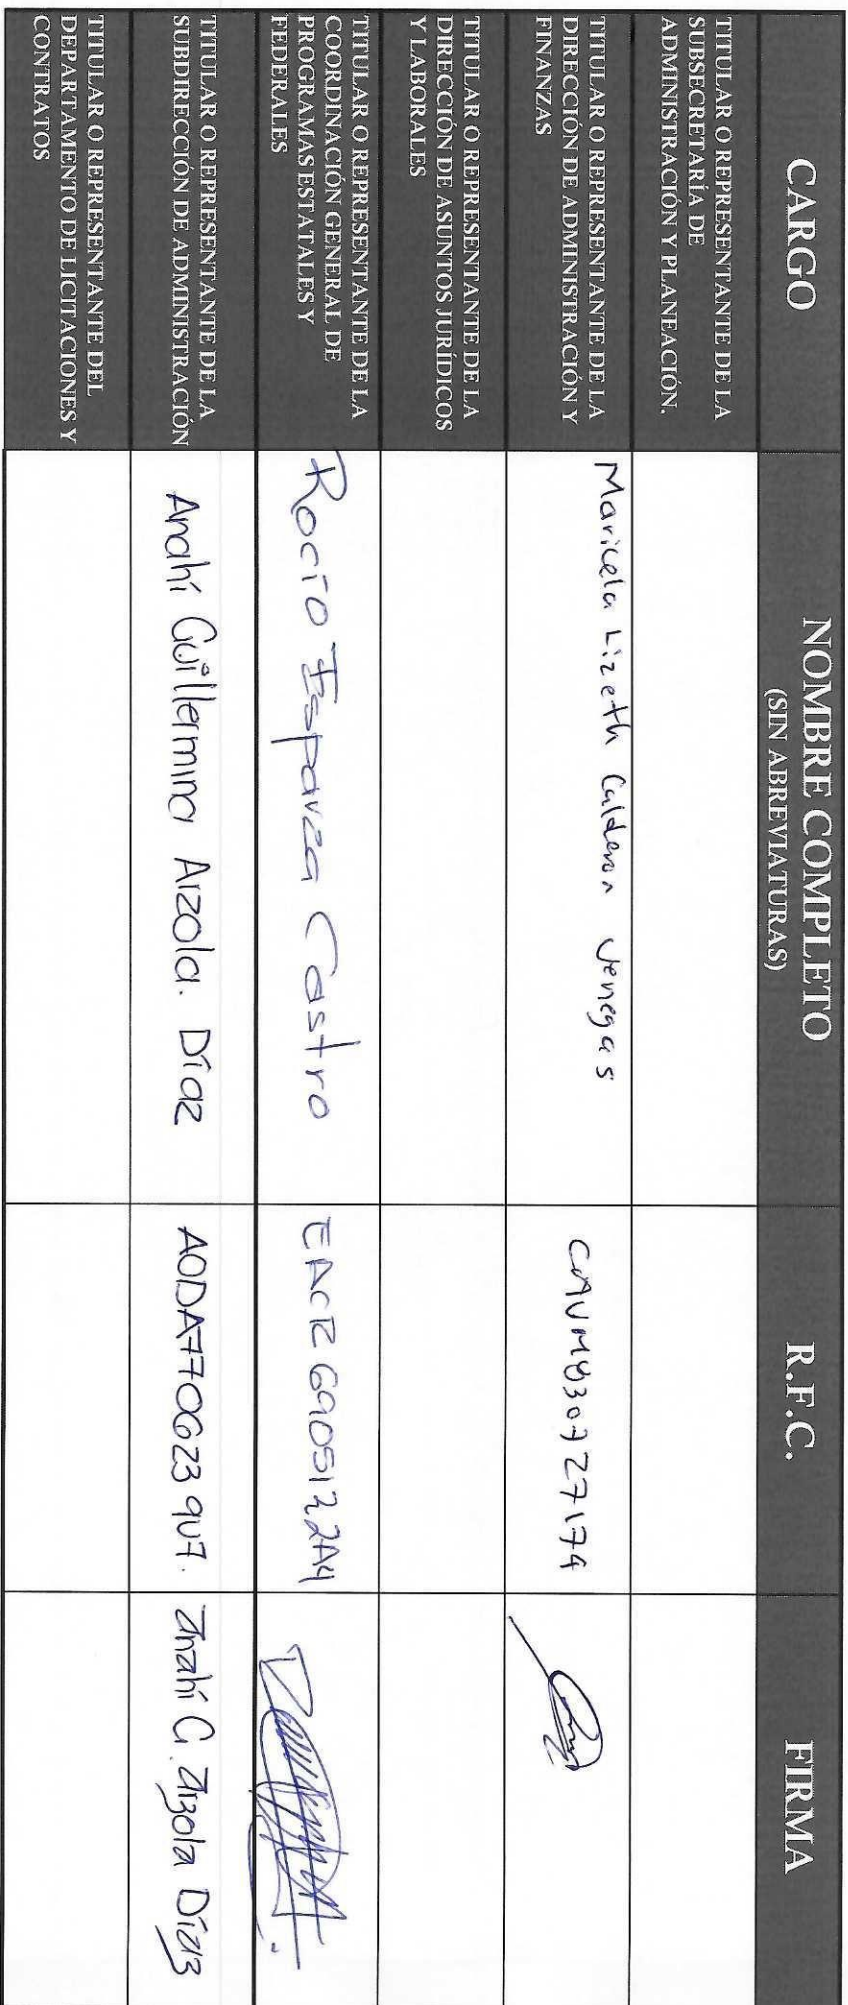 CARGO
NOMBRE COMPLETO
(SIN ABREVIATURAS)
R.F.C.
FIRMA
TITULAR O REPRESENTANTE DE LA
SUBSECRETARÍA DE
ADMINISTRACIÓN Y PLANEACIÓN.
TITULAR O REPRESENTANTE DE LA
DIRECCIÓN DE ADMINISTRACIÓN Y
FINANZAS
Maricela Lizeth Calderon Venegas
CAVM830727174
TITULAR O REPRESENTANTE DE LA
DIRECCIÓN DE ASUNTOS JURÍDICOS
Y LABORALES
TITULAR O REPRESENTANTE DE LA
COORDINACIÓN GENERAL DE
PROGRAMAS ESTATALES Y
FEDERALES
Rocío Esparza Castro
EACR6905122A4
TITULAR O REPRESENTANTE DE LA
SUBDIRECCIÓN DE ADMINISTRACIÓN
Anahí Guillermina Arzola. Díaz
AODA770623 9U7.
Anahí G. Arzola Díaz
TITULAR O REPRESENTANTE DEL
DEPARTAMENTO DE LICITACIONES Y
CONTRATOS